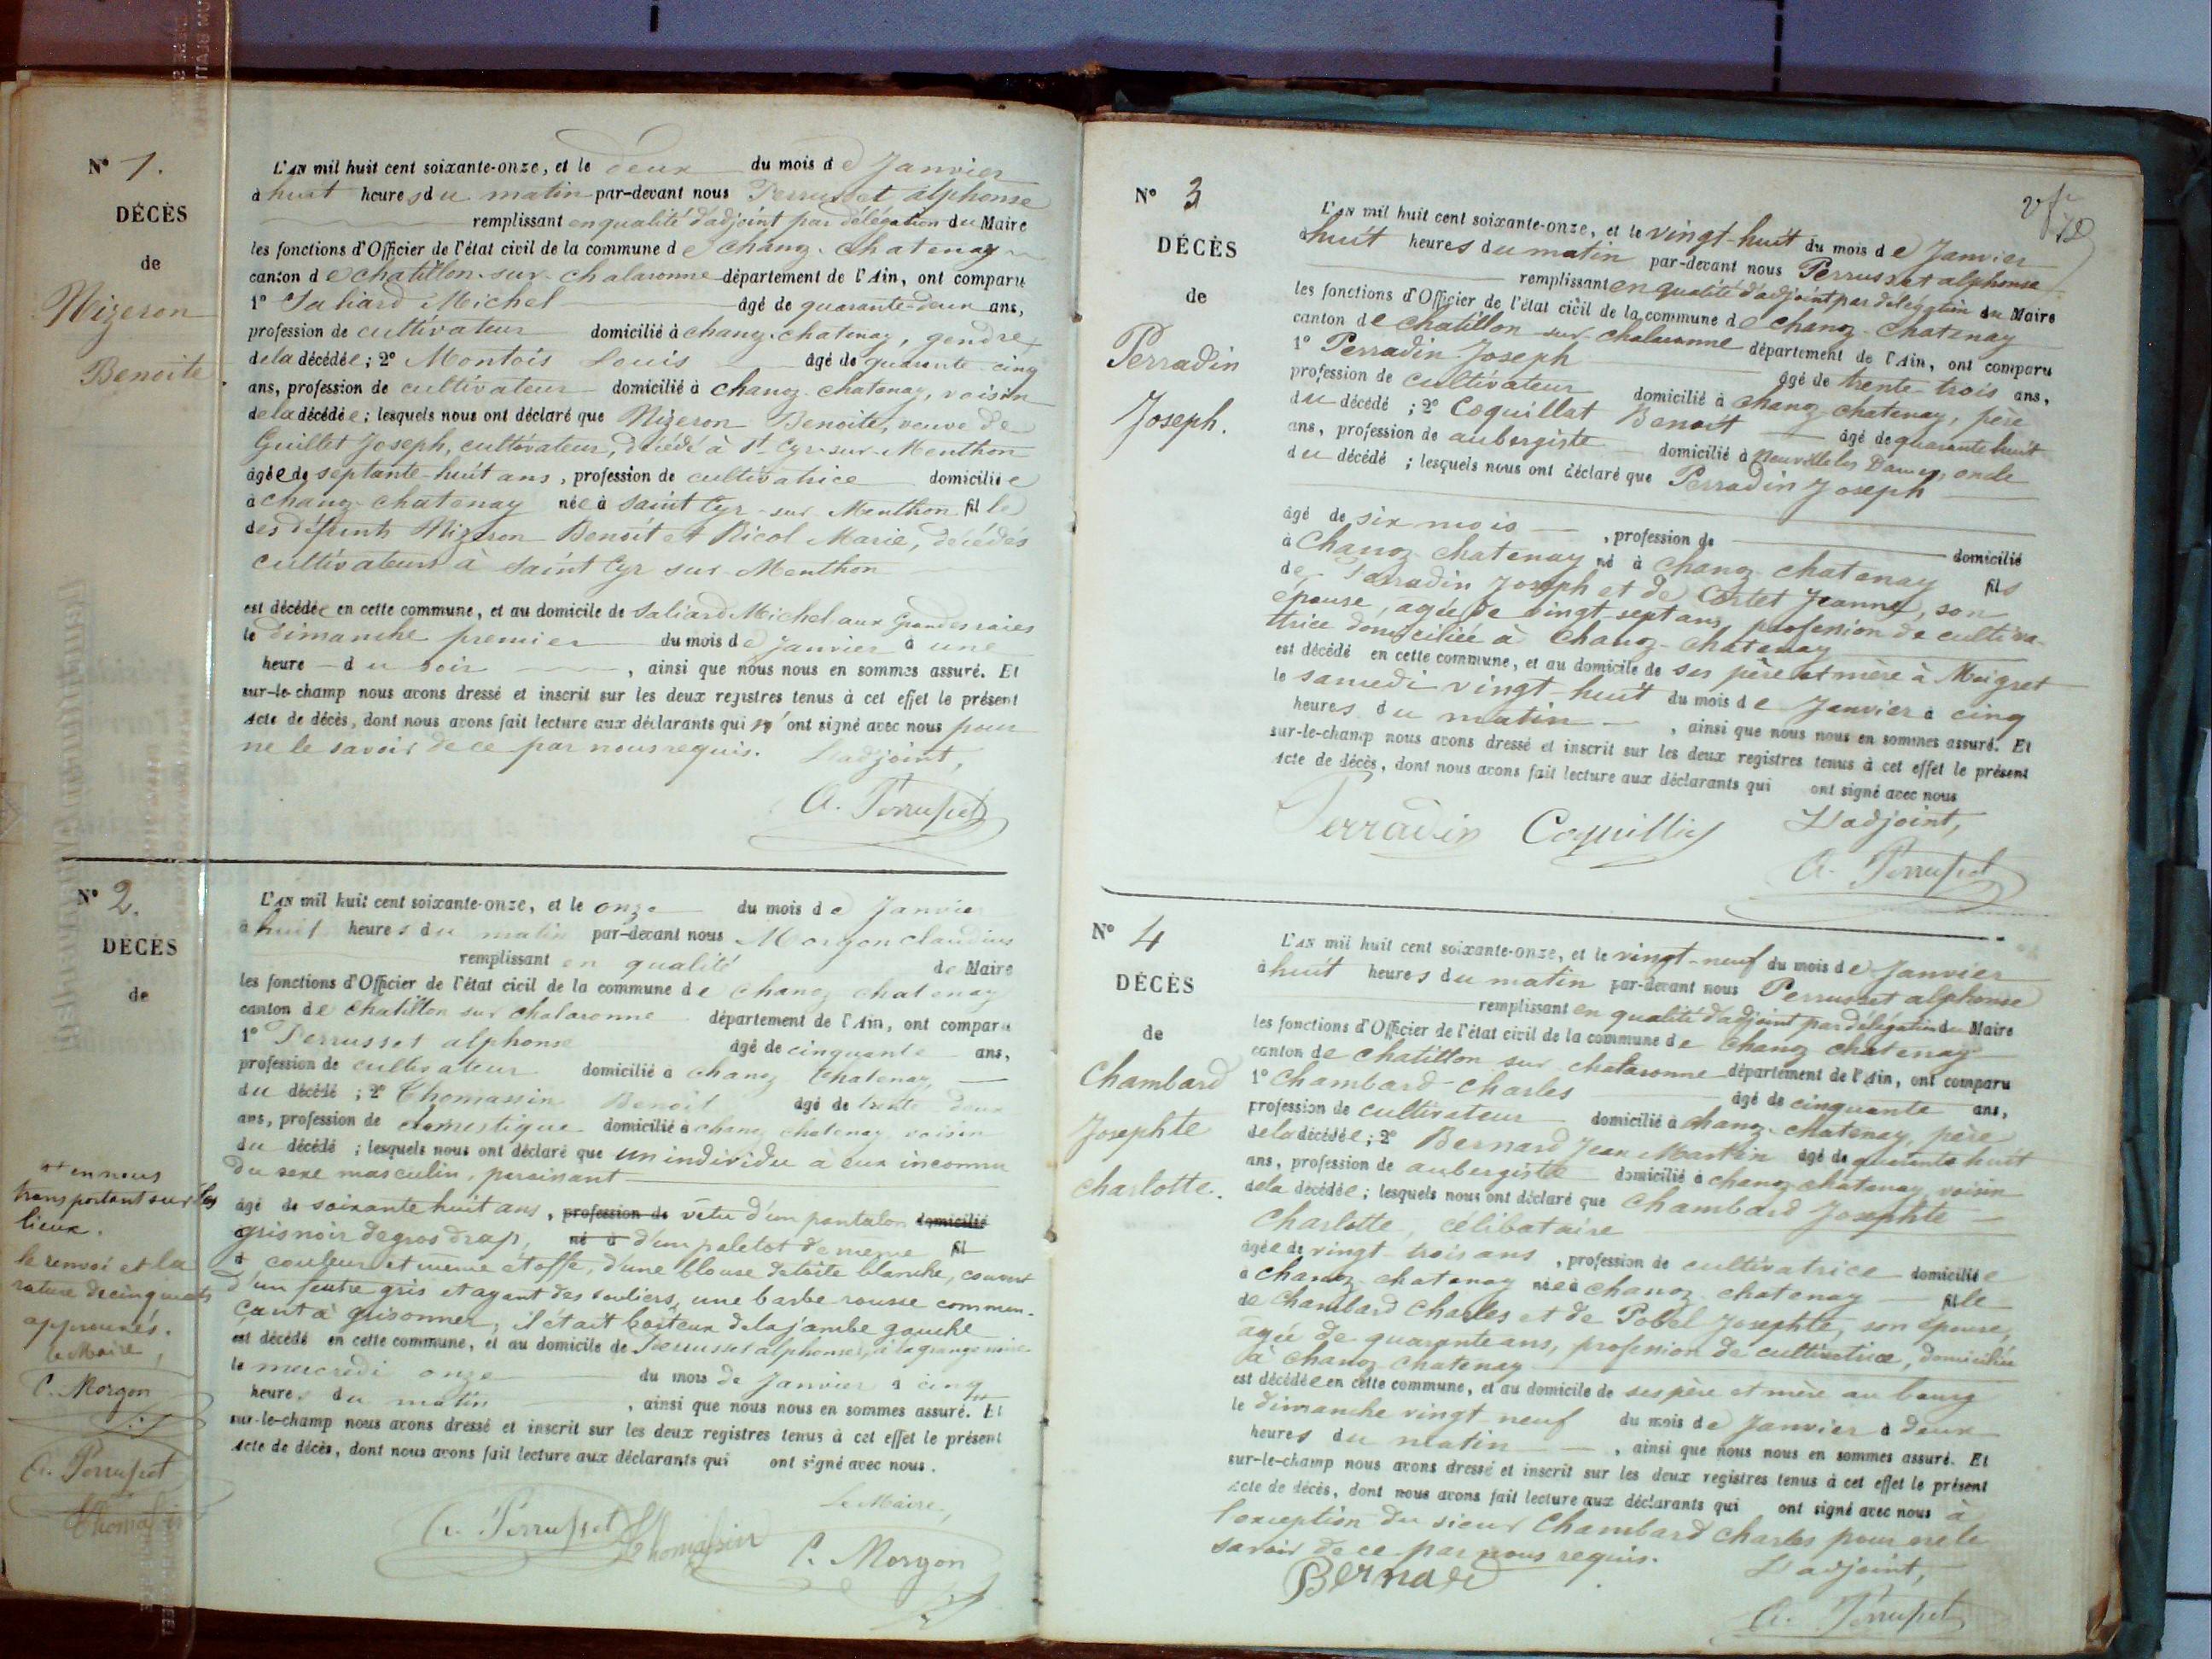 N° 1.
DÉCÈS
de
Nizeron
Benoite
L'AN mil huit cent soixante-onze, et le deux du mois de Janvier
à huit heures du matin par-devant nous Perrusset alphonse
remplissant en qualité d'adjoint par délégation du Maire
les fonctions d'Officier de l'état civil de la commune de Chanoz-Chatenay
canton de chatillon-sur-chalaronne département de l'Ain, ont comparu
1° Saliard Michel âgé de quarante-deux ans,
profession de cultivateur domicilié à chanoz-chatenay, gendre
de la décédée ; 2° Montois Louis âgé de quarante-cinq
ans, profession de cultivateur domicilié à chanoz-chatenay, voisin
de la décédée ; lesquels nous ont déclaré que Nizeron Benoite, veuve de
Guillet Joseph, cultivateur, décédé à St Cyr-sur-Menthon
âgée de septante-huit ans, profession de cultivatrice domiciliée
à chanoz-chatenay née à Saint Cyr-sur-Menthon fille
des défunts Nizeron Benoît et Ricol Marie, décédés
cultivateurs à Saint Cyr sur Menthon
est décédée en cette commune, et au domicile de Saliard Michel aux Grandes raies
le dimanche premier du mois de Janvier à une
heure du soir, ainsi que nous nous en sommes assuré. Et
sur-le-champ nous avons dressé et inscrit sur les deux registres tenus à cet effet le présent
Acte de décès, dont nous avons fait lecture aux déclarants qui n'ont signé avec nous pour
ne le savoir de ce par nous requis. L'adjoint,
A. Perrusset
N° 2.
DÉCÈS
de
L'AN mil huit cent soixante-onze, et le onze du mois de Janvier
à huit heures du matin par-devant nous Morgon claudius
remplissant en qualité de Maire
les fonctions d'Officier de l'état civil de la commune de chanoz chatenay
canton de chatillon sur chalaronne département de l'Ain, ont comparu
1° Perrusset alphonse âgé de cinquante ans,
profession de cultivateur domicilié à chanoz chatenay,
du décédé ; 2° Thomassin Benoit âgé de trente-deux
ans, profession de domestique domicilié à chanoz chatenay voisin
du décédé ; lesquels nous ont déclaré que un individu à eux inconnu
du sexe masculin, paraissant
âgé de soixante huit ans, profession de vêtu d'un pantalon domicilié
gris noir de gros drap, né à d'un paletot de meme fil
d couleur et même étoffe, d'une blouse de toile blanche, couvert
d'un feutre gris et ayant des souliers, une barbe rousse commen-
çant à grisonner, il était boiteux de la jambe gauche
est décédé en cette commune, et au domicile de Perrusset alphonse, à la grange
le mercredi onze du mois de Janvier à cinq
heures du matin, ainsi que nous nous en sommes assuré. Et
sur-le-champ nous avons dressé et inscrit sur les deux registres tenus à cet effet le présent
Acte de décès, dont nous avons fait lecture aux déclarants qui ont signé avec nous.
Le Maire,
A. Perrusset Thomassin C. Morgon
en nous
transportant sur les
lieux.
le renvoi et la
rature de cinq mots
approuvés.
le Maire,
C. Morgon
A. Perrusset
Thomassin
N° 3
DÉCÈS
de
Perradin
Joseph.
L'AN mil huit cent soixante-onze, et le vingt-huit du mois de Janvier
à huit heures du matin par-devant nous Perrusset alphonse
remplissant en qualité d'adjoint par délégation du Maire
les fonctions d'Officier de l'état civil de la commune de chanoz-chatenay
canton de chatillon sur chalaronne département de l'Ain, ont comparu
1° Perradin Joseph âgé de trente trois ans,
profession de cultivateur domicilié à chanoz-chatenay, père
du décédé ; 2° Coquillat Benoit âgé de quarante huit
ans, profession de aubergiste domicilié à Neuville les Dames, oncle
du décédé ; lesquels nous ont déclaré que Perradin Joseph
âgé de six mois, profession de domicilié
à Chanoz chatenay né à chanoz chatenay fils
de Perradin Joseph et de Cortet Jeanne, son
épouse, agée de vingt-sept ans, profession de cultiva-
trice domiciliée à Chanoz-Chatenay
est décédé en cette commune, et au domicile de ses père et mère à Maigret
le samedi vingt-huit du mois de Janvier à cinq
heures du matin, ainsi que nous nous en sommes assuré. Et
sur-le-champ nous avons dressé et inscrit sur les deux registres tenus à cet effet le présent
Acte de décès, dont nous avons fait lecture aux déclarants qui ont signé avec nous
L'adjoint,
Perradin
A. Perrusset
N° 4
DÉCÈS
de
Chambard
Josephte
charlotte.
L'AN mil huit cent soixante-onze, et le vingt-neuf du mois de Janvier
à huit heures du matin par-devant nous Perrusset alphonse
remplissant en qualité d'adjoint par délégation du Maire
les fonctions d'Officier de l'état civil de la commune de Chanoz chatenay
canton de chatillon sur chalaronne département de l'Ain, ont comparu
1° Chambard Charles âgé de cinquante ans,
profession de cultivateur domicilié à chanoz-chatenay, père
de la décédée ; 2° Bernard Jean Martin âgé de quarante huit
ans, profession de aubergiste domicilié à chanoz-chatenay, voisin
de la décédée ; lesquels nous ont déclaré que Chambard Josephte
Charlotte, célibataire
âgée de vingt-trois ans, profession de cultivatrice domiciliée
à chanoz-chatenay née à chanoz chatenay fille
de Chambard Charles et de Pobel Josephte, son épouse,
agée de quarante ans, profession de cultivatrice, domiciliée
à chanoz chatenay
est décédée en cette commune, et au domicile de ses père et mère au bourg
le dimanche vingt-neuf du mois de Janvier à deux
heures du matin, ainsi que nous nous en sommes assuré. Et
sur-le-champ nous avons dressé et inscrit sur les deux registres tenus à cet effet le présent
Acte de décès, dont nous avons fait lecture aux déclarants qui ont signé avec nous à
l'exception du sieur Chambard Charles pour ne le
savoir de ce par nous requis. L'adjoint,
Bernard
A. Perrusset